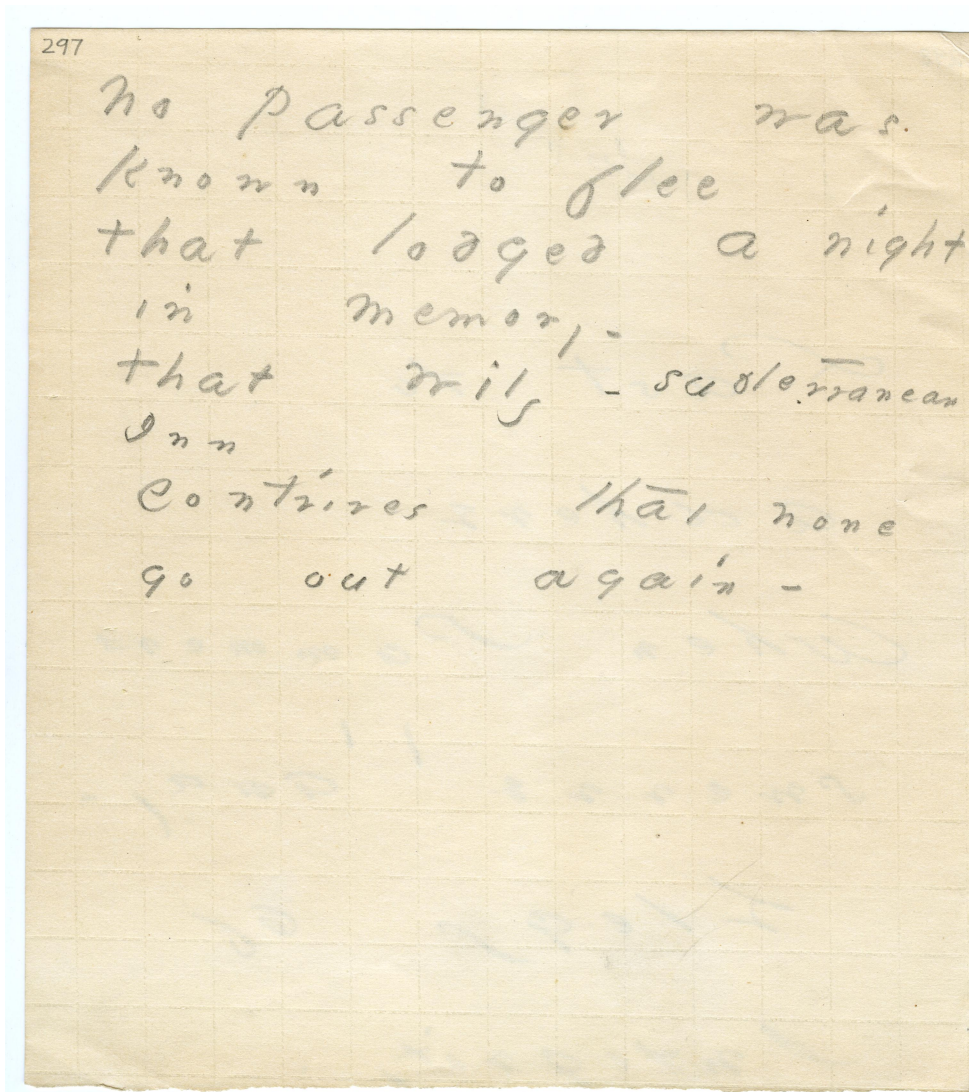 297
No passenger was
known to flee
that lodged a night
in memory -
that wily - subterranean
Inn
Contrives that none
go out again -